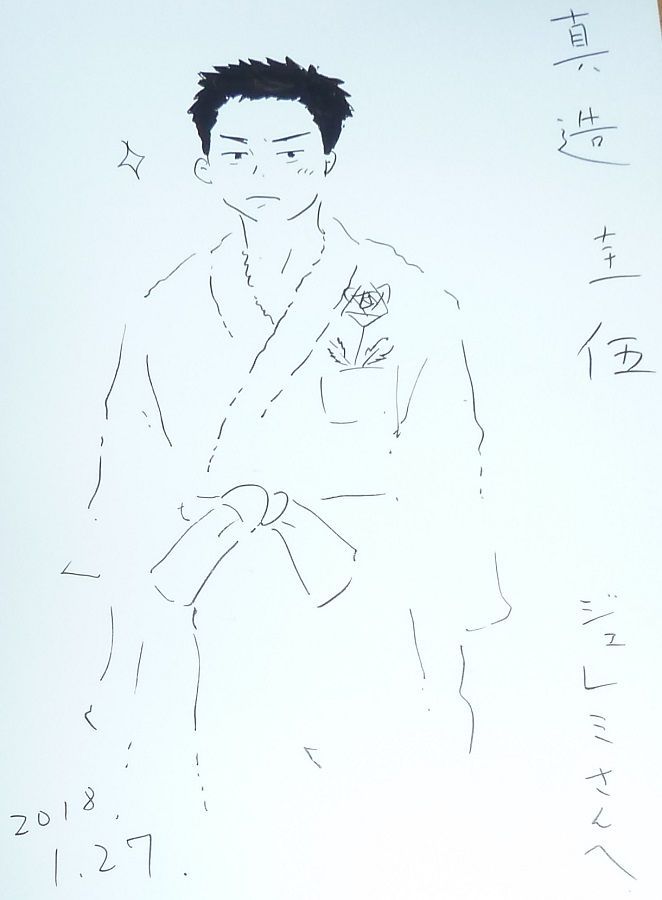 真造圭伍
ジェレミさんへ
2018.
1.27.